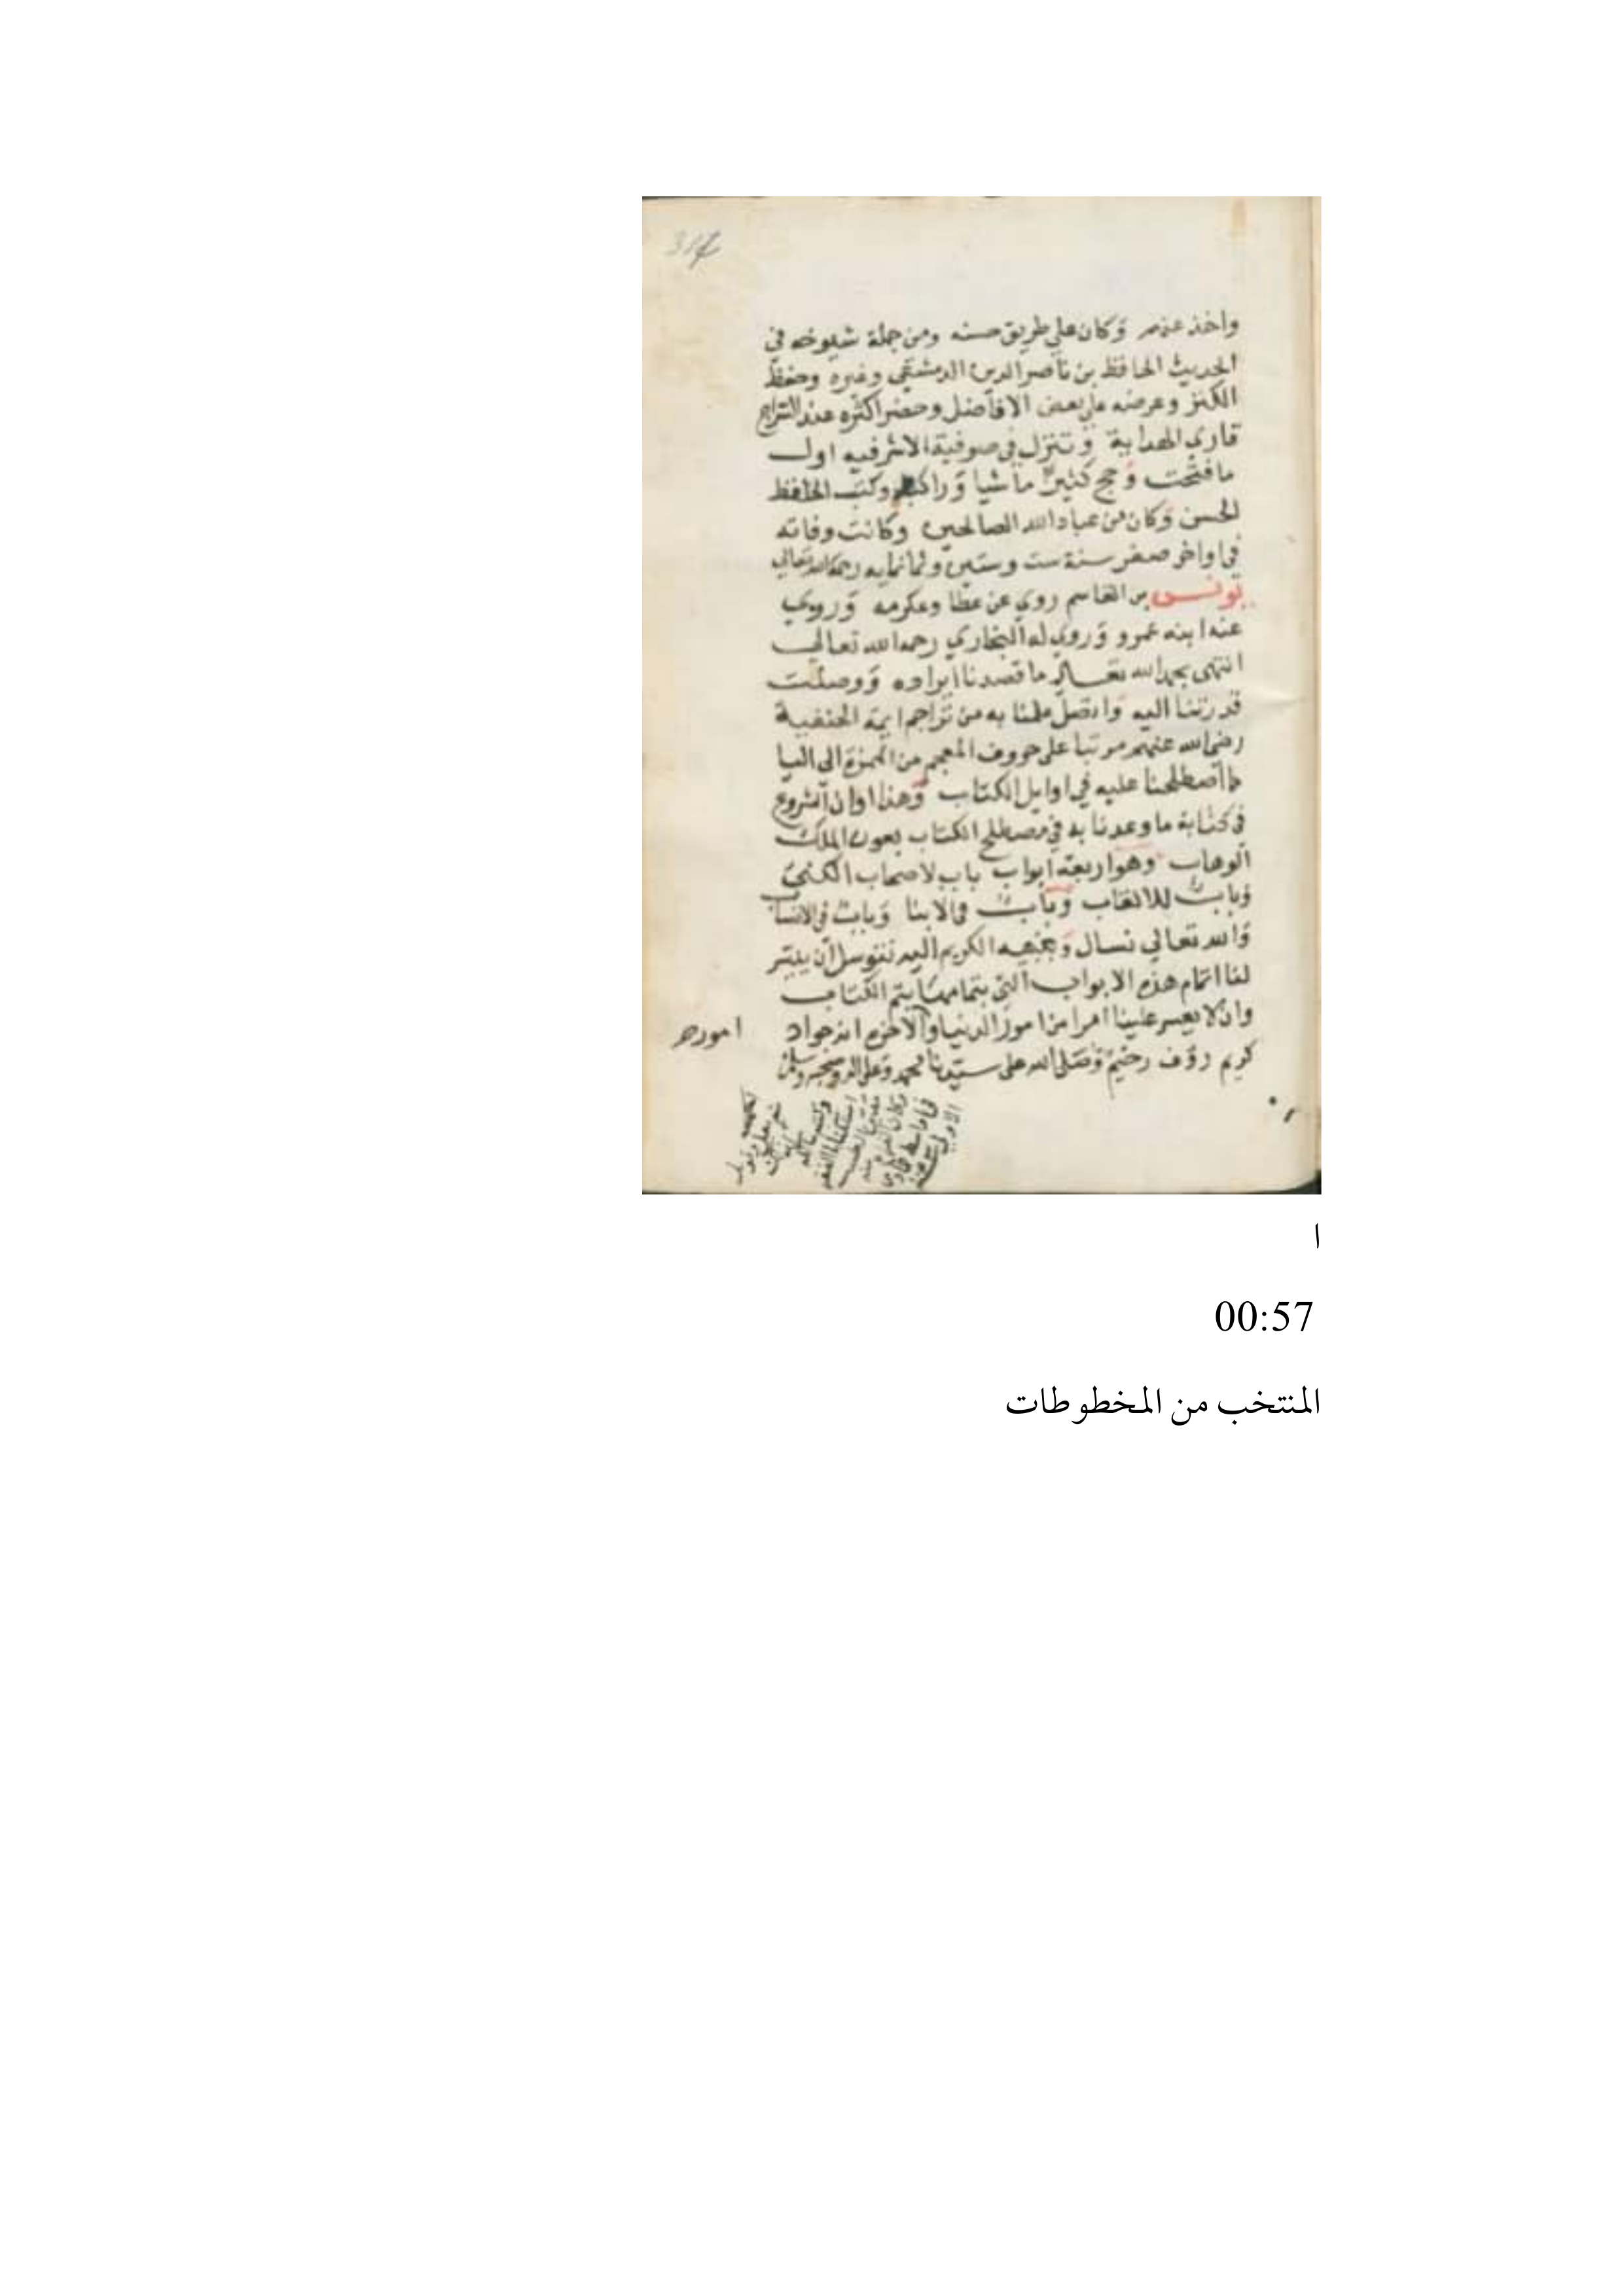 314
واخذ عنهم وكان علي طريق حسنه ومن جملة شيوخه في
الحديث الحافظ بن ناصر الدين الدمشقي وغيره وحفظ
الكنز وعرضه علي بعض الافاضل وحضر اكثره عند السراج
قاري الهداية وتنزل في صوفية الاشرفيه اول
ما فتحت وحج كثيرا ماشيا وراكبا وكتب الخط
الحسن وكان من عباد الله الصالحين وكانت وفاته
في اواخر صفر سنة ست وستين وثمانمايه رحمه الله تعالي
يونس بن القاسم روي عن عطا وعكرمه وروي
عنه ابنه عمرو وروي له البخاري رحمه الله تعالي
انتهى بحمد الله تعالى ما قصدنا ايراده ووصلت
قدرتنا اليه واتصل علمنا به من تراجم ايمة الحنفية
رضي الله عنهم مرتبا على حروف المعجم من الهمزة الى اليا
كما اصطلحنا عليه في اوايل الكتاب وهذا اوان الشروع
في كتابة ما وعدنا به في مصطلح الكتاب بعون الملك
الوهاب وهو اربعة ابواب باب لاصحاب الكنى
وباب للالقاب وباب في الابنا وباب في الانساب
والله تعالي نسال وبنبيه الكريم اليه نتوسل ان ييسر
لنا اتمام هذه الابواب التي بتمامها يتم الكتاب
وان لا يعسر علينا امرا من امور الدنيا والاخره انه جواد
كريم رؤف رحيم وصلى الله على سيدنا محمد وعلى اله وصحبه وسلم
ا
00:57
المنتخب من المخطوطات